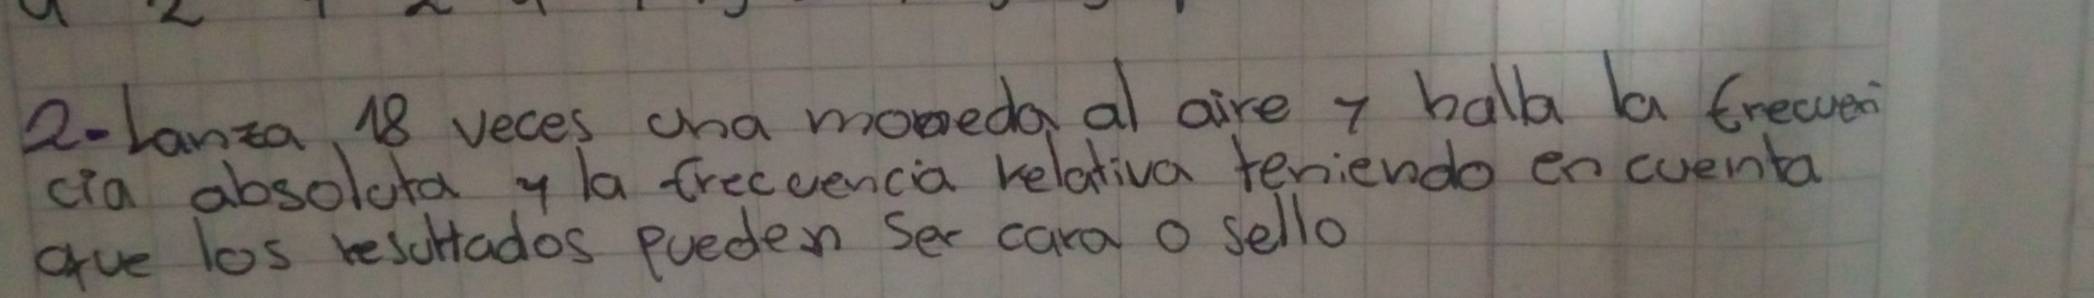 2-Lanza 18 veces una moneda al aire y halla la frecuen
cia absoluta y la frecuencia relativa teniendo en cuenta
que los resultados pueden ser cara o sello